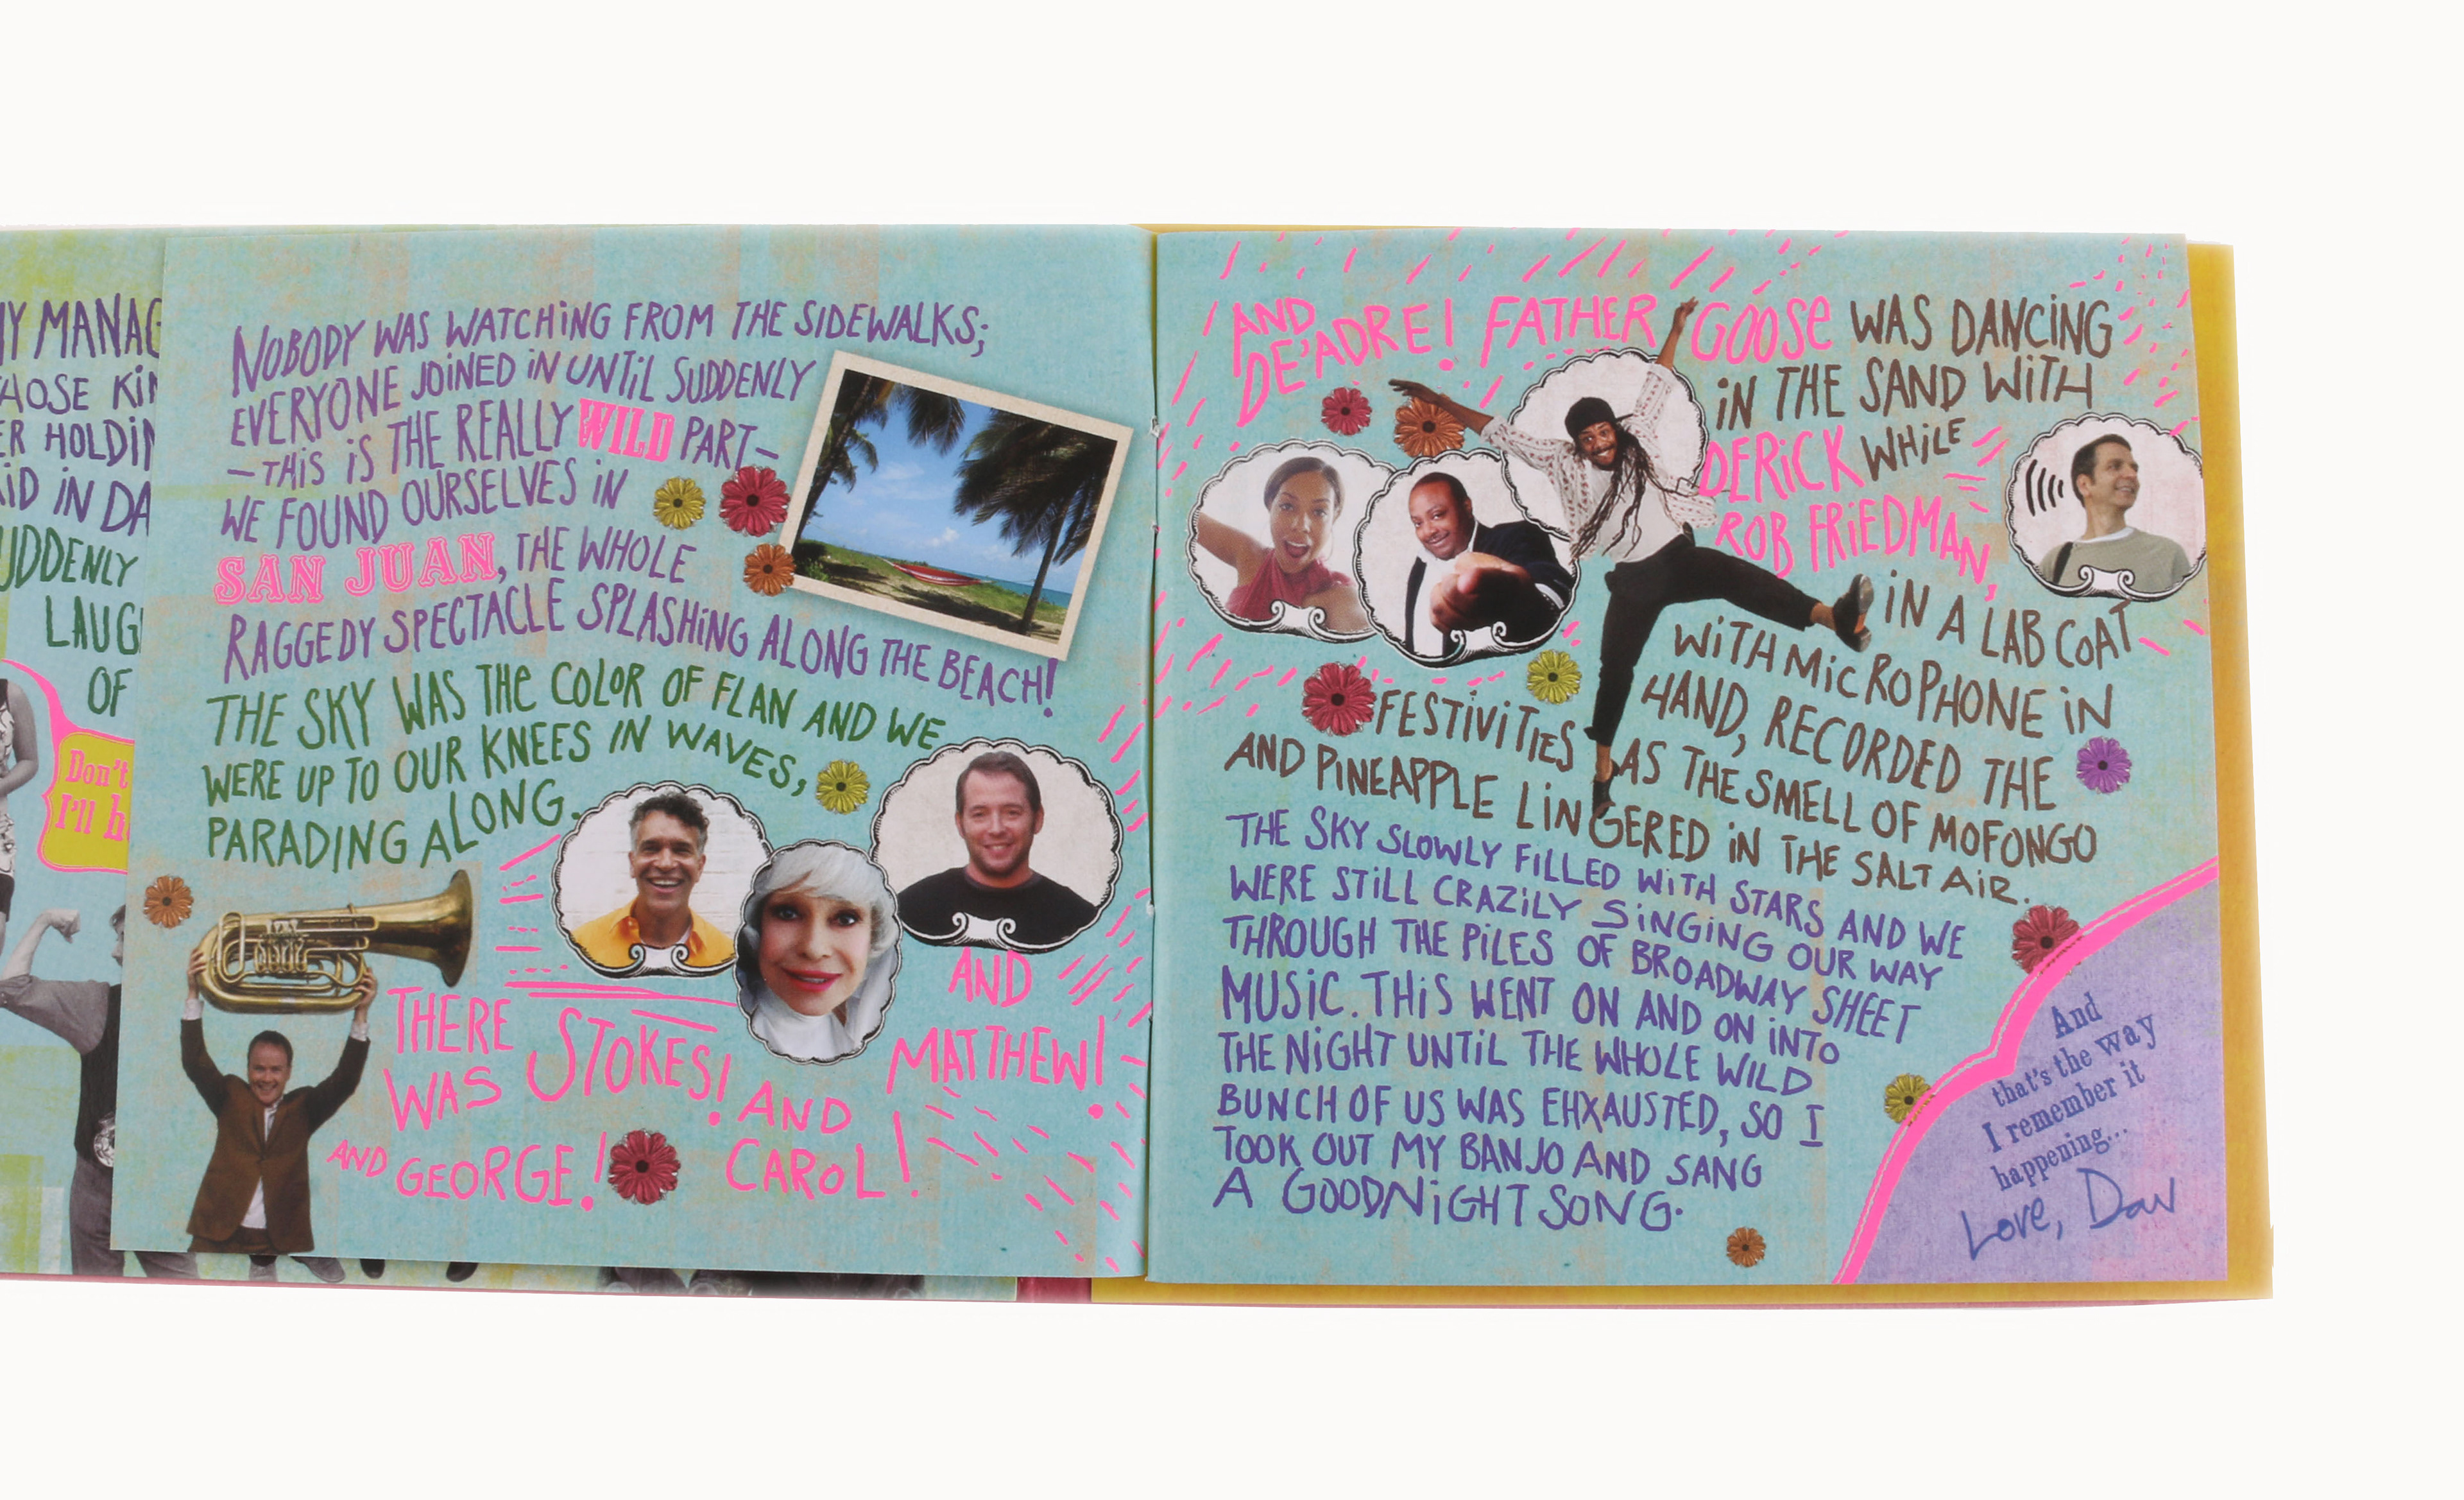 MY MANAG
HOSE KIN
ER HOLDIN
AID IN DA
UDDENLY
LAUG
OF
Don't
I'll h
NOBODY WAS WATCHING FROM THE SIDEWALKS;
EVERYONE JOINED IN UNTIL SUDDENLY
—THIS IS THE REALLY WILD PART—
WE FOUND OURSELVES IN
SAN JUAN, THE WHOLE
RAGGEDY SPECTACLE SPLASHING ALONG THE BEACH!
THE SKY WAS THE COLOR OF FLAN AND WE
WERE UP TO OUR KNEES IN WAVES,
PARADING ALONG.
THERE
WAS STOKES!
AND GEORGE!
AND
CAROL!
AND
MATTHEW!
AND
DE'ADRE! FATHER GOOSE WAS DANCING
IN THE SAND WITH
DERICK WHILE
ROB FRIEDMAN,
IN A LAB COAT
WITH MICROPHONE IN
HAND, RECORDED THE
FESTIVITIES AS THE SMELL OF MOFONGO
AND PINEAPPLE LINGERED IN THE SALT AIR.
THE SKY SLOWLY FILLED WITH STARS AND WE
WERE STILL CRAZILY SINGING OUR WAY
THROUGH THE PILES OF BROADWAY SHEET
MUSIC. THIS WENT ON AND ON INTO
THE NIGHT UNTIL THE WHOLE WILD
BUNCH OF US WAS EHXAUSTED, SO I
TOOK OUT MY BANJO AND SANG
A GOODNIGHT SONG.
And
that's the way
I remember it
happening...
Love, Dan